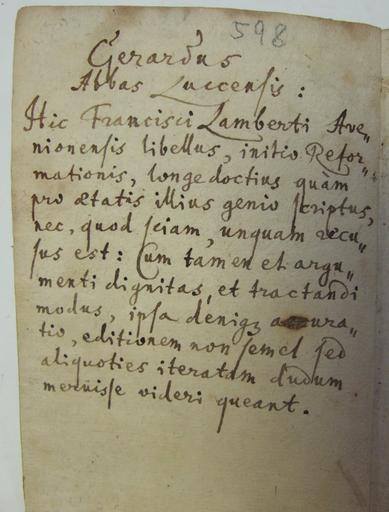 598
Gerardus
Abbas Luccensis:
Hic Francisci Lamberti Ave„
nionensis libellus, initio Refor„
mationis, longe doctius quàm
pro ætatis illius genio scriptus,
nec, quod sciam, unquam recu„
sus est: Cum tamen et argu„
menti dignitas, et tractandi
modus, ipsa deniqꝫ accura„
tio, editionem non semel sed
aliquoties iteratam dudum
meruisse videri queant.